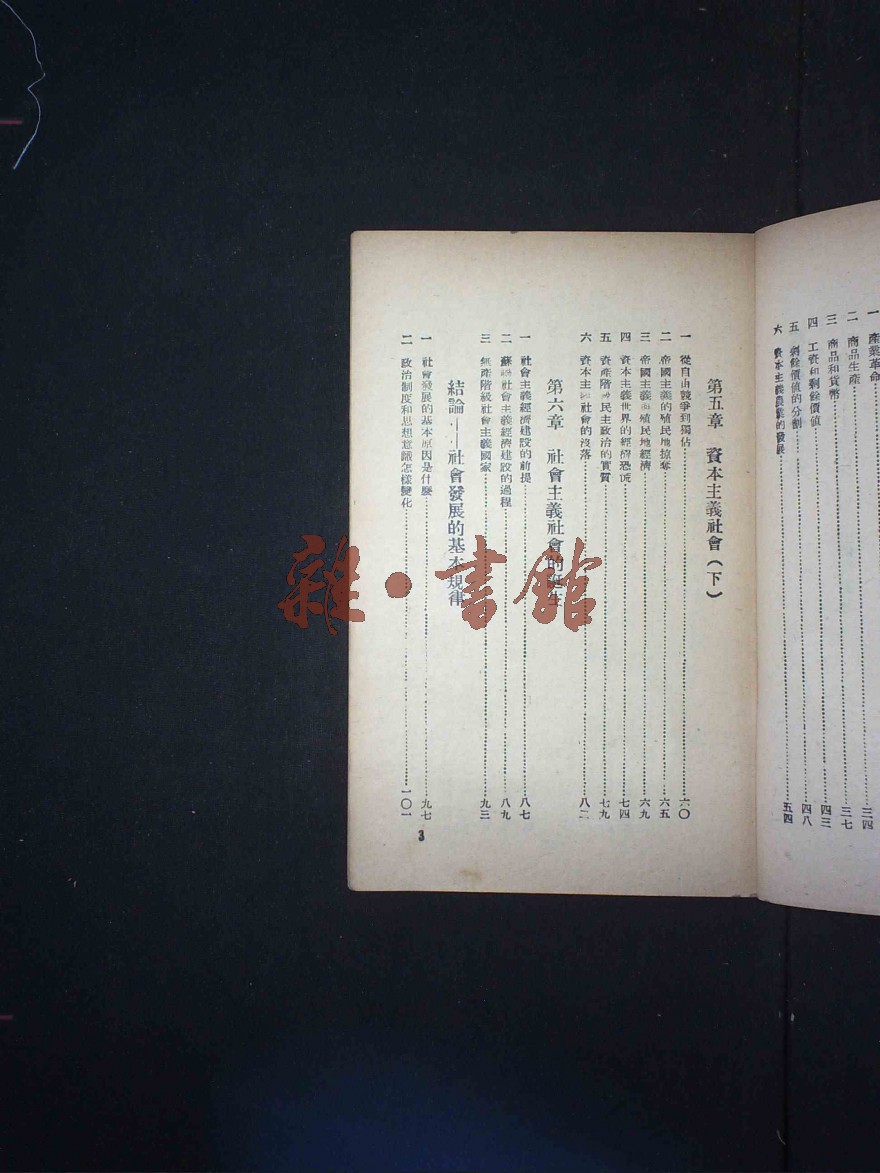 一 產業革命……三四
二 商品生產……三七
三 商品和貨幣……四三
四 工資和剩餘價值……四八
五 剩餘價值的分割
六 資本主義農業的發展……五四
第五章 資本主義社會(下)
一 從自由競爭到獨佔……六〇
二 帝國主義的殖民地掠奪……六五
三 帝國主義與殖民地經濟……六九
四 資本主義世界的經濟恐慌……七四
五 資產階級民主政治的實質……七九
六 資本主義社會的沒落……八二
第六章 社會主義社會的誕生
一 社會主義經濟建設的前提……八七
二 蘇聯社會主義經濟建設的過程……八九
三 無產階級社會主義國家……九三
結論——社會發展的基本規律
一 社會發展的基本原因是什麼……九七
二 政治制度和思想意識怎樣變化……一〇一
3
雜·書館